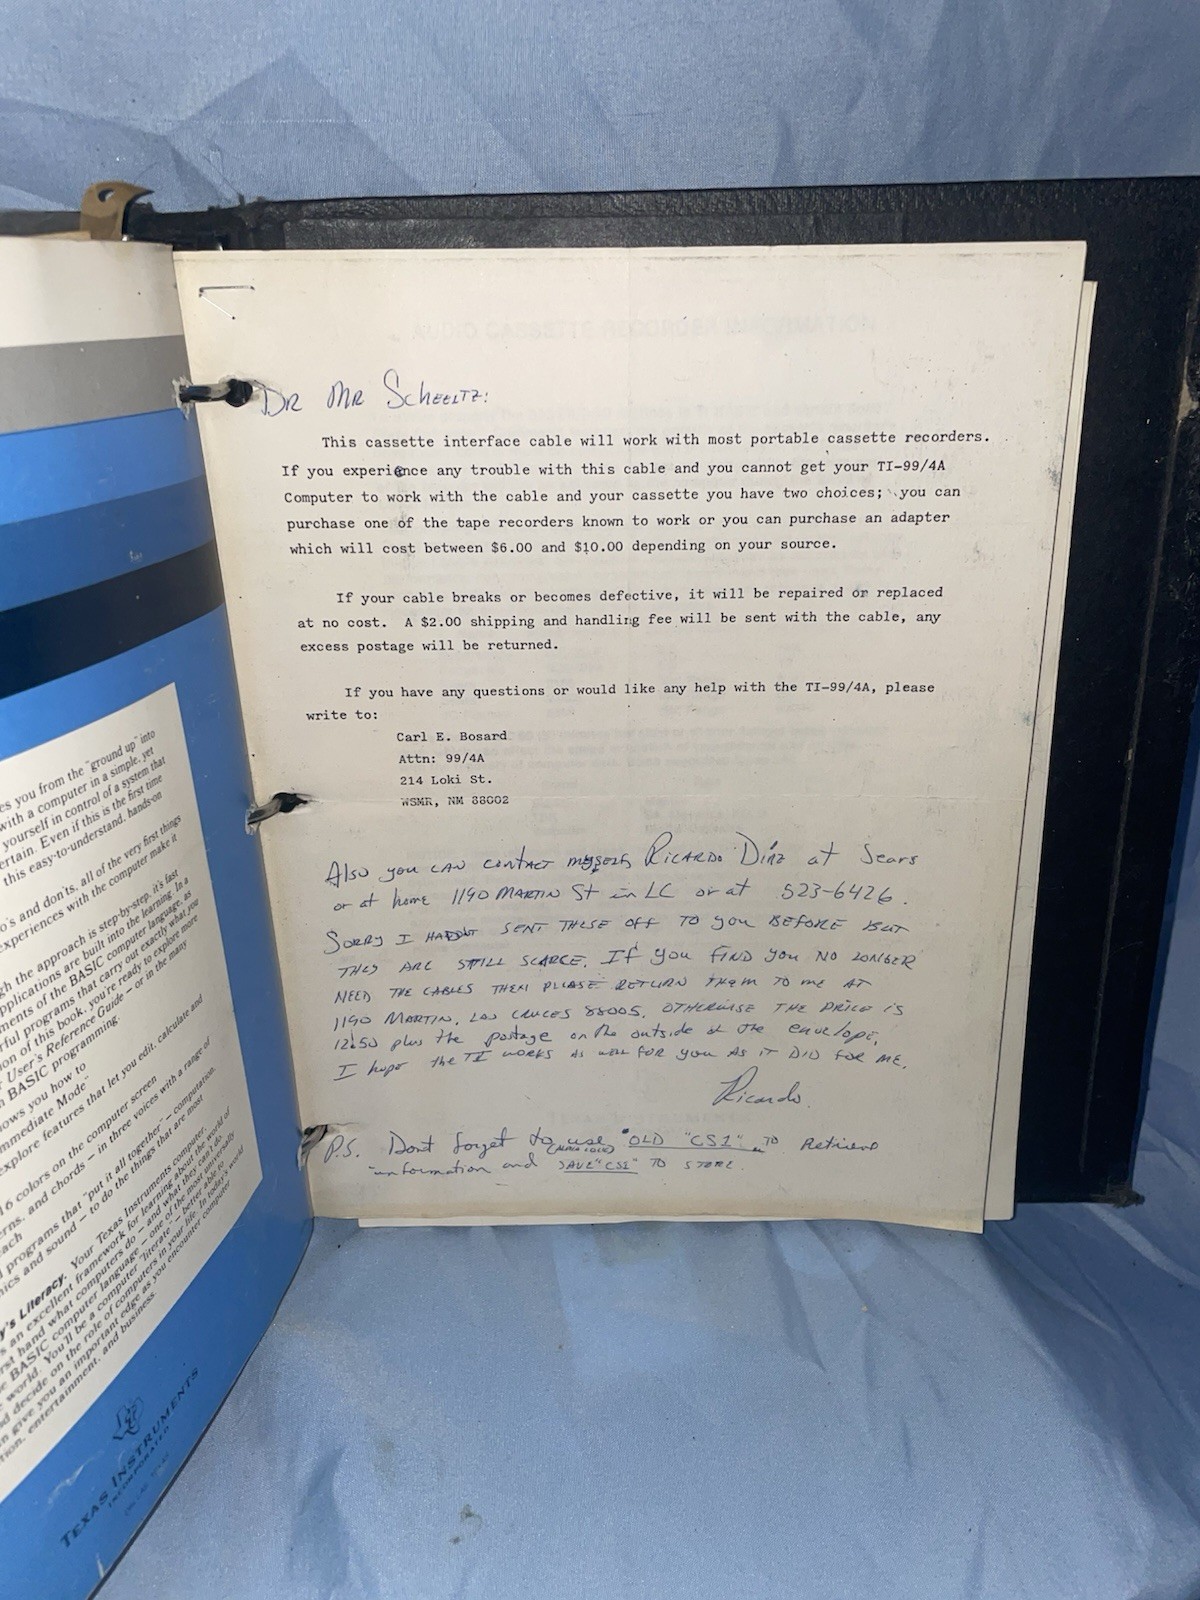 es you from the "ground up" into
with a computer in a simple, yet
yourself in control of a system that
ertain. Even if this is the first time
this easy-to-understand, hands-on
o's and don'ts, all of the very first things
experiences with the computer make it
gh the approach is step-by-step, it's fast
pplications are built into the learning. In a
ments of the BASIC computer language, as
rful programs that carry out exactly what you
ion of this book, you're ready to explore more
User's Reference Guide – or in the many
n BASIC programming.
ows you how to
mmediate Mode"
explore features that let you edit, calculate and
16 colors on the computer screen
erns, and chords – in three voices with a range of
each
programs that "put it all together" – computation,
hics and sound – to do the things that are most
y's Literacy. Your Texas Instruments computer,
s an excellent framework for learning about the world of
rst hand what computers do – and what they can't do.
e BASIC computer language – one of the most universally
world. You'll be a computer "literate" – better able to
nd decide on the role of computers in your life. In today's world
n give you an important edge as you encounter computer
tion, entertainment, and business.
TEXAS INSTRUMENTS
INCORPORATED
DR MR SCHEELTZ:
This cassette interface cable will work with most portable cassette recorders.
If you experience any trouble with this cable and you cannot get your TI-99/4A
Computer to work with the cable and your cassette you have two choices; you can
purchase one of the tape recorders known to work or you can purchase an adapter
which will cost between $6.00 and $10.00 depending on your source.
If your cable breaks or becomes defective, it will be repaired or replaced
at no cost. A $2.00 shipping and handling fee will be sent with the cable, any
excess postage will be returned.
If you have any questions or would like any help with the TI-99/4A, please
write to:
Carl E. Bosard
Attn: 99/4A
214 Loki St.
WSMR, NM 88002
Also you can contact myself, Ricardo Diaz at Sears
or at home 1190 Martin St in LC or at 523-6426.
SORRY I HADNT SENT THESE OFF TO YOU BEFORE BUT
THEY ARE STILL SCARCE. IF YOU FIND YOU NO LONGER
NEED THE CABLES THEN PLEASE RETURN THEM TO ME AT
1190 MARTIN, LAS CRUCES 88005. OTHERWISE THE PRICE IS
12.50 plus the postage on the outside of the envelope.
I hope the TI WORKS AS WELL FOR YOU AS IT DID FOR ME.
Ricardo.
P.S. Dont forget to use "OLD "CS1" TO Retrieve
information and SAVE "CS1" TO STORE.